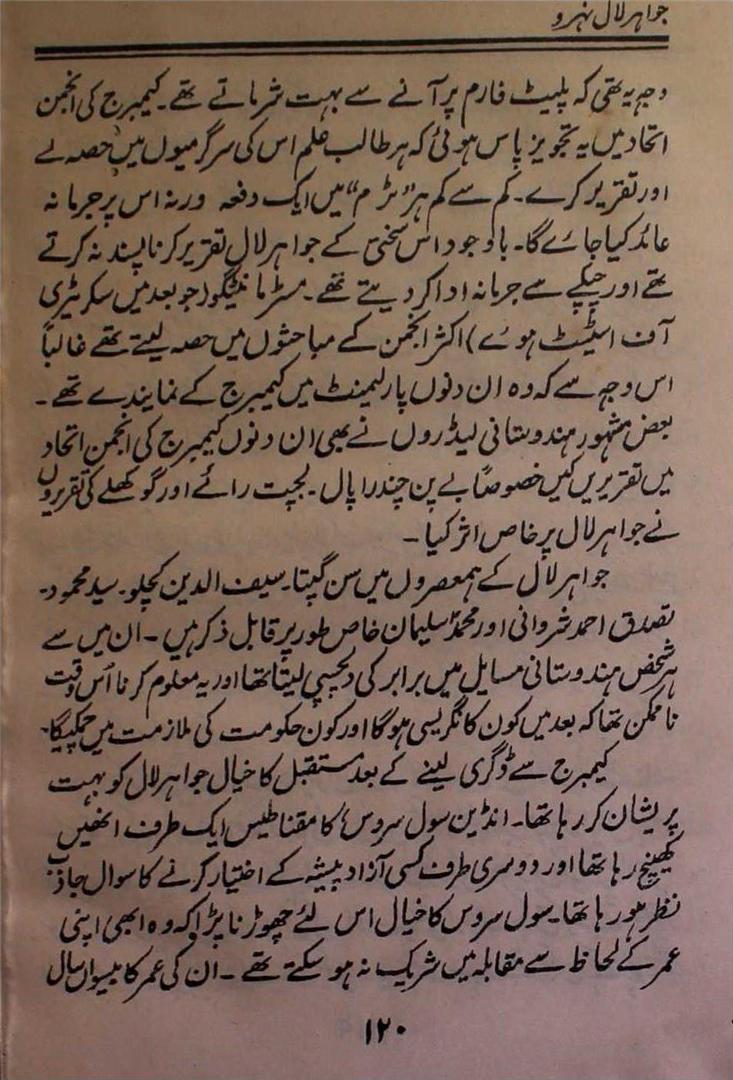 جواہر لال نہرو
وجہ یہ تھی کہ پلیٹ فارم پر آنے سے بہت شرماتے تھے۔ کیمبرج کی انجمن
اتحاد میں یہ تجویز پاس ہوئی کہ ہر طالب علم اس کی سرگرمیوں میں حصہ لے
اور تقریر کرے۔ کم سے کم ہر "ٹرم" میں ایک دفعہ ورنہ اس پر جرمانہ
عائد کیا جائے گا۔ باوجود اس سختی کے جواہر لال تقریر کرنا پسند نہ کرتے
تھے اور چپکے سے جرمانہ ادا کر دیتے تھے۔ مسٹر مانٹیگو (جو بعد میں سکرٹیری
آف اسٹیٹ ہوئے) اکثر انجمن کے مباحثوں میں حصہ لیتے تھے غالباً
اس وجہ سے کہ وہ ان دنوں پارلیمنٹ میں کیمبرج کے نمایندے تھے۔
بعض مشہور ہندوستانی لیڈروں نے بھی ان دنوں کیمبرج کی انجمن اتحاد
میں تقریریں کیں خصوصاً بے پن چندرا پال۔ لجپت رائے اور گوکھلے کی تقریروں
نے جواہر لال پر خاص اثر کیا۔
جواہر لال کے ہمعصروں میں سن گپتا۔ سیف الدین کچلو۔ سید محمود۔
تصدق احمد شروانی اور محمد سلیمان خاص طور پر قابل ذکر ہیں۔ ان میں سے
ہر شخص ہندوستانی مسایل میں برابر کی دلچسپی لیتا تھا اور یہ معلوم کرنا اُس وقت
ناممکن تھا کہ بعد میں کون کانگریسی ہوگا اور کون حکومت کی ملازمت میں چمکیگا۔
کیمبرج سے ڈگری لینے کے بعد مستقبل کا خیال جواہر لال کو بہت
پریشان کر رہا تھا۔ انڈین سول سروس کا مقناطیس ایک طرف انھیں
کھینچ رہا تھا اور دوسری طرف کسی آزاد پیشہ کے اختیار کرنے کا سوال جاذب
نظر ہو رہا تھا۔ سول سروس کا خیال اس لئے چھوڑنا پڑا کہ وہ ابھی اپنی
عمر کے لحاظ سے مقابلہ میں شریک نہ ہو سکتے تھے۔ ان کی عمر کا بیسواں سال
۱۲۰